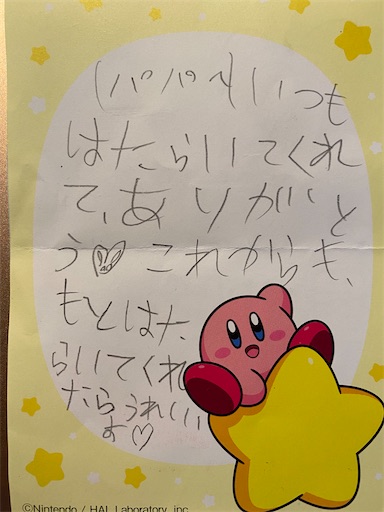 (パパへ)いつも
はたらいてくれ
て、ありがと
う♡これからも、
もとはた
らいてくれ
たらうれしい
よ♡
©Nintendo / HAL Laboratory, inc.